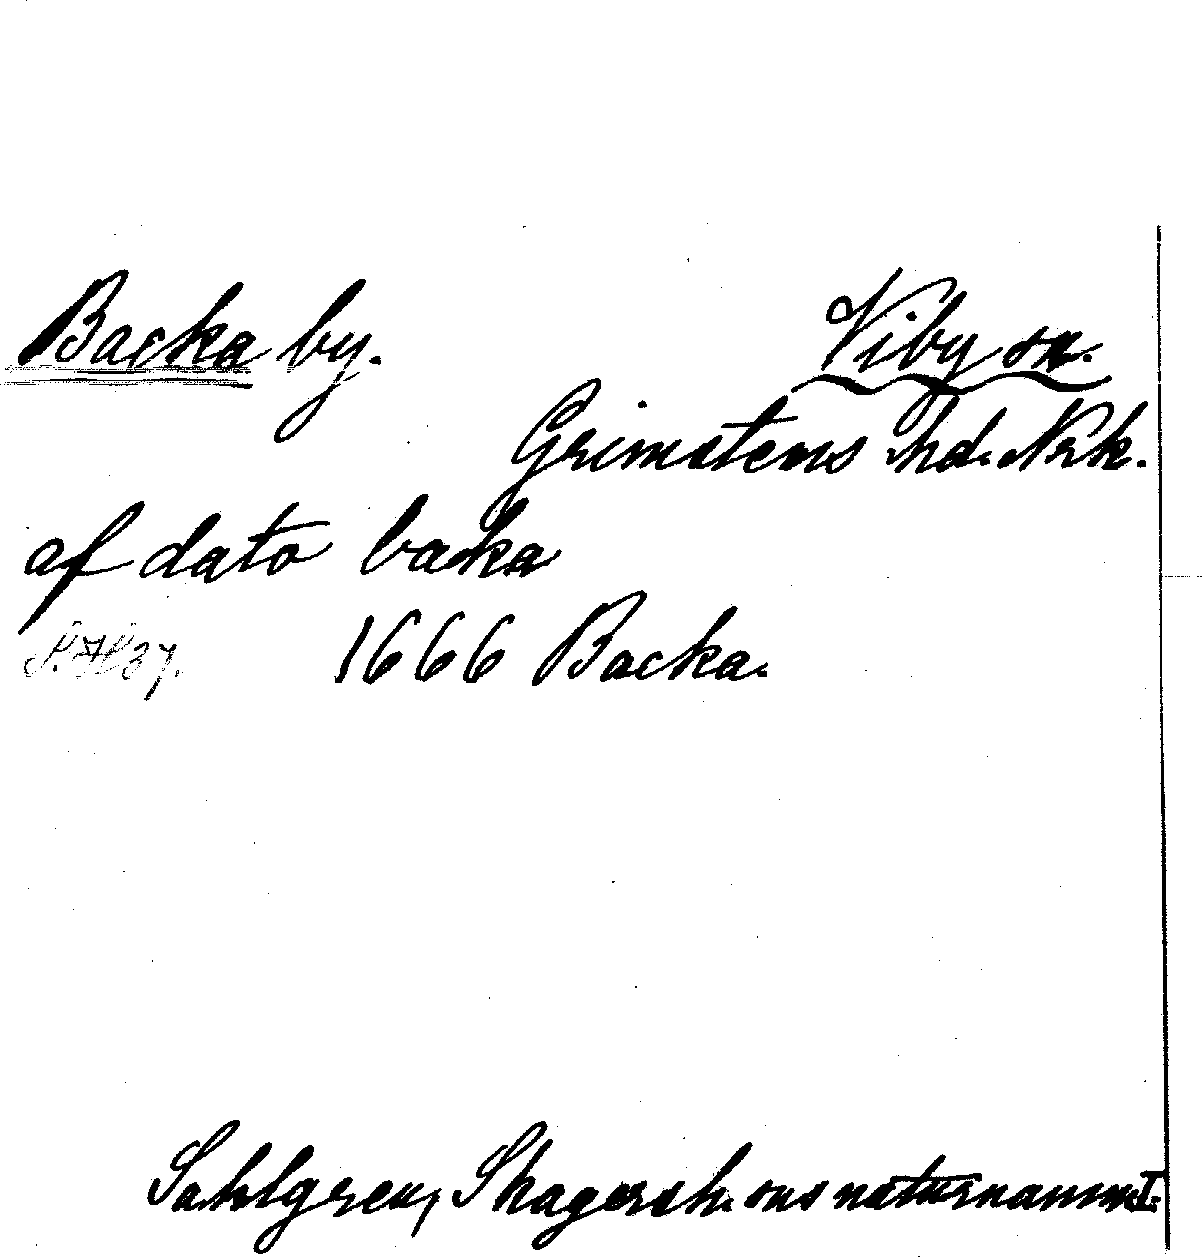 Backa by. Viby sn.
Grimstens hd. Nrk.
af dato backa
1666 Backa.
Sahlgren, Skagersh. sns naturnamn I.